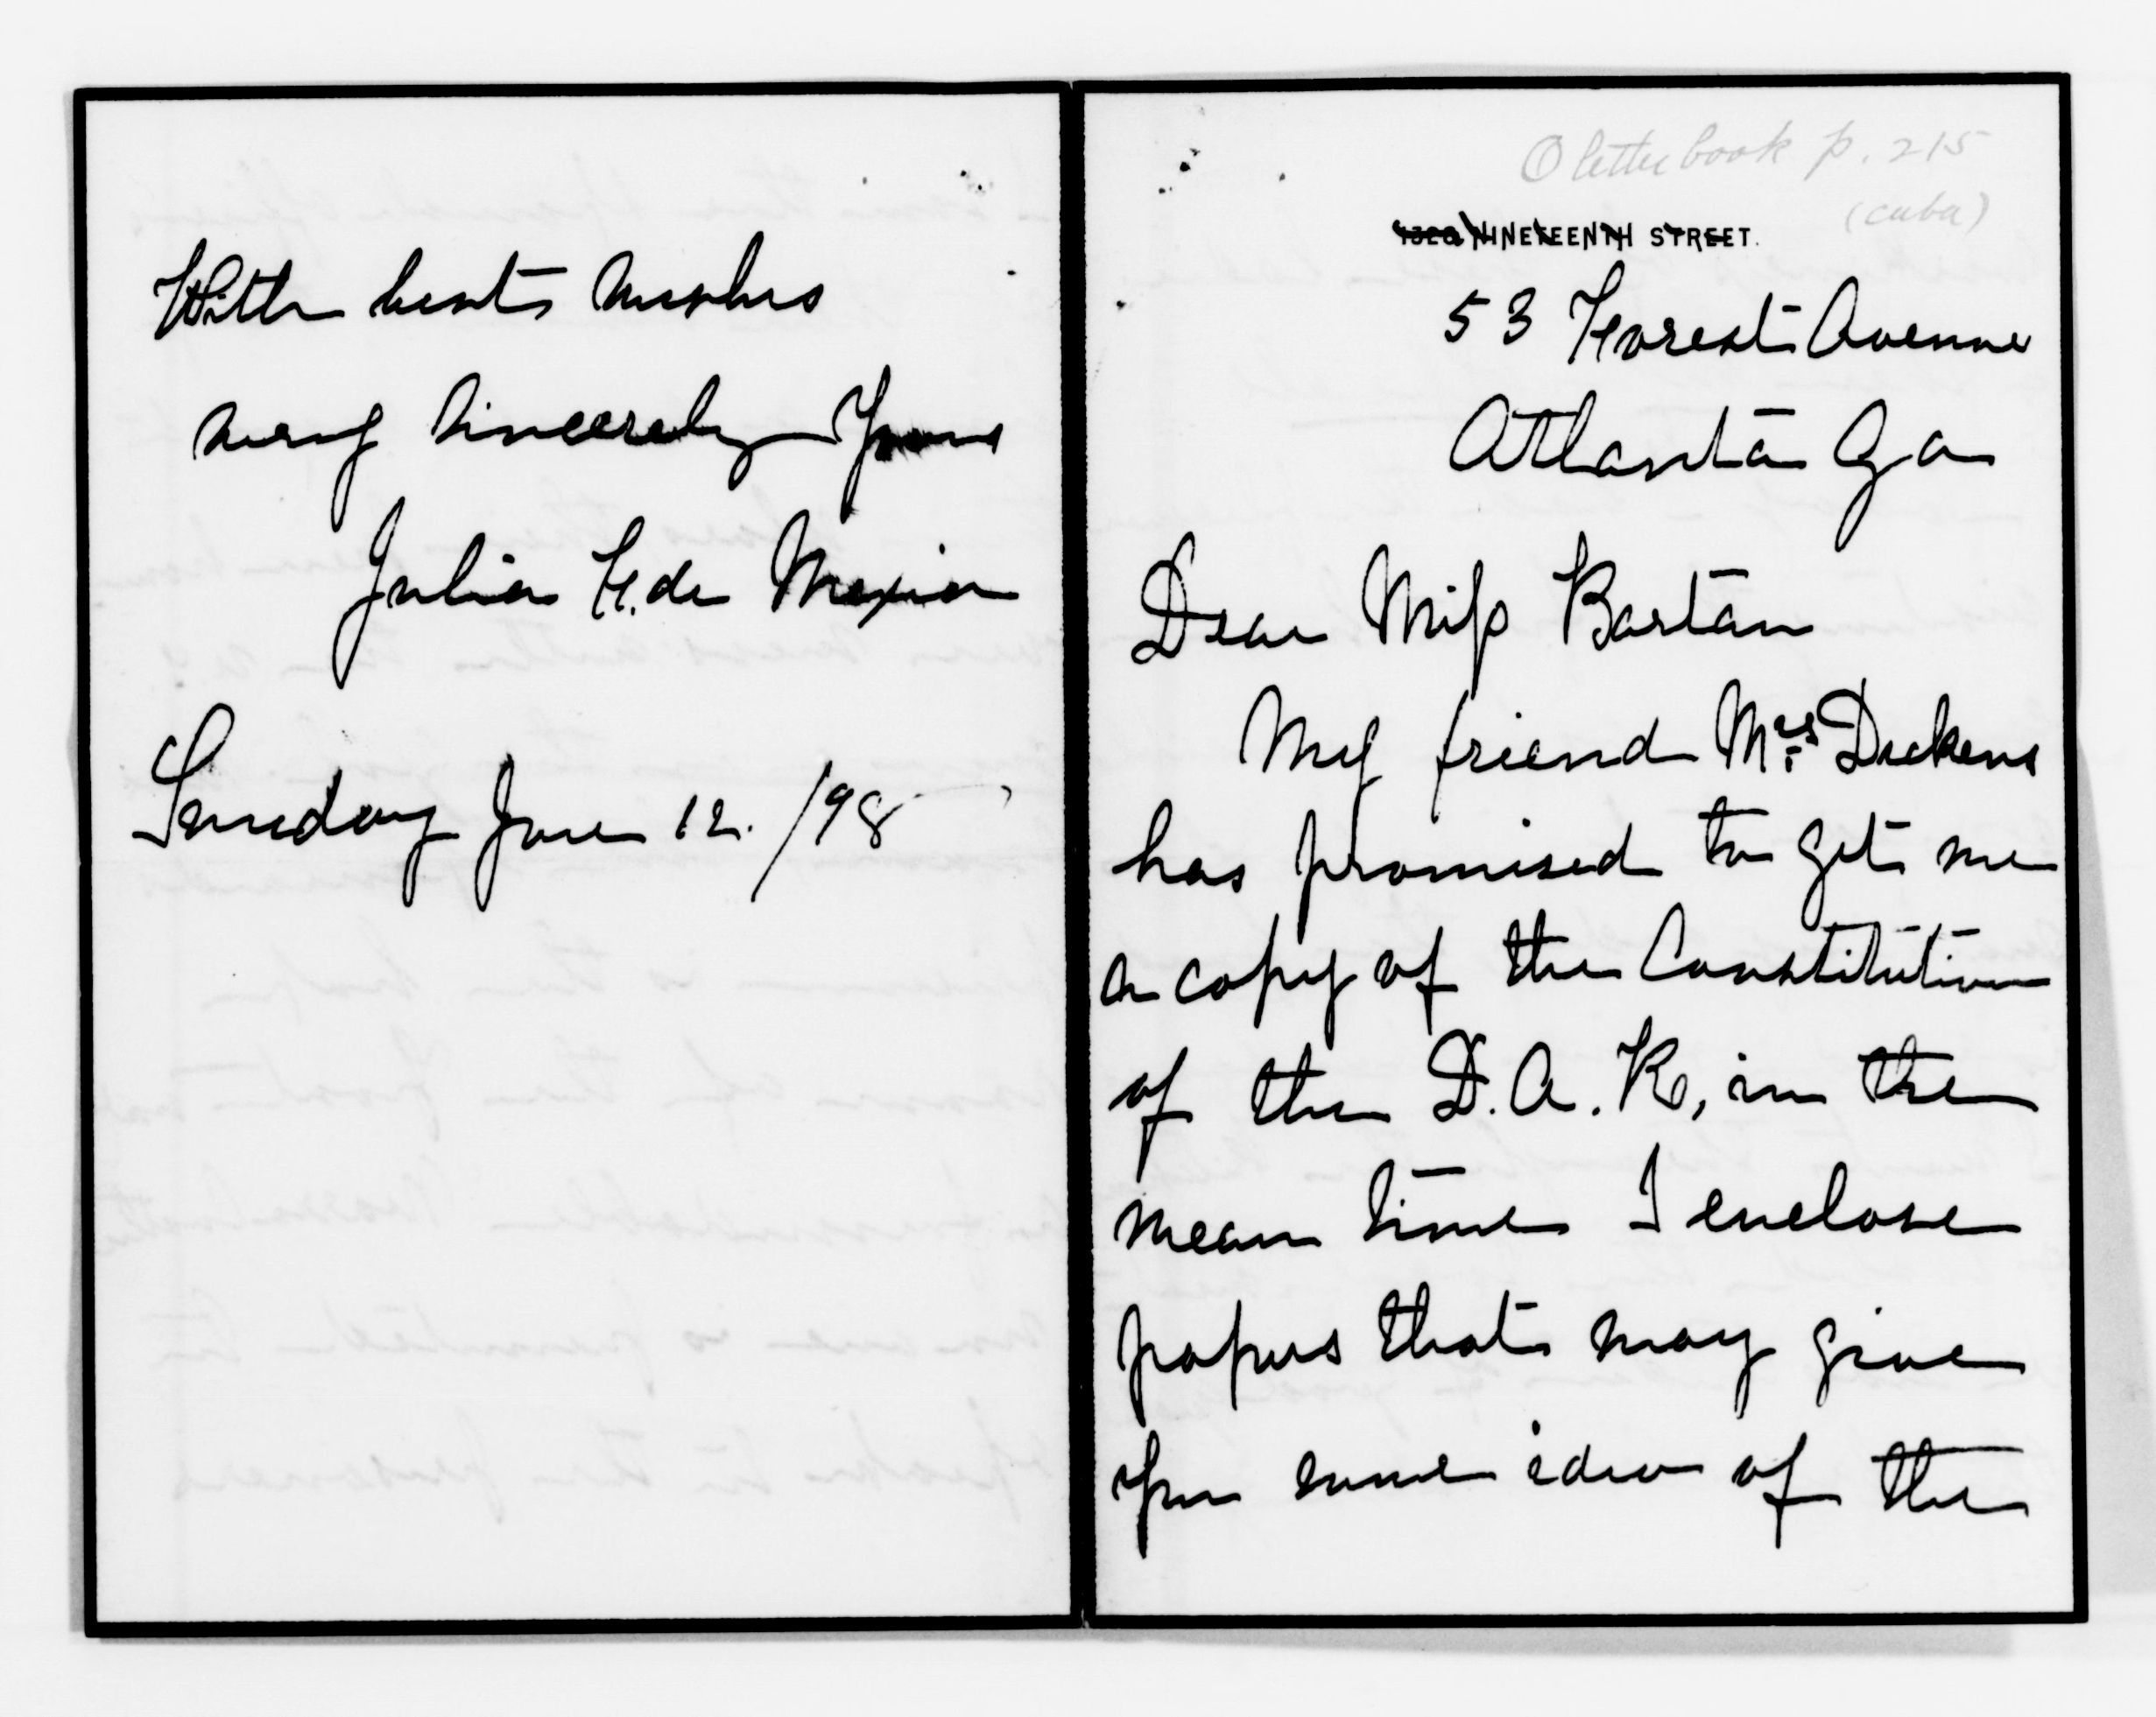 With best wishes
very sincerely Yours
Julia F. de Mexia
Sunday June 12. /98
O letter book p. 215
(Cuba)
NINETEENTH STREET.
53 Forest Avenue
Atlanta Ga
Dear Miss Barton
My friend Mrs Dickens
has promised to get me
a copy of the Constitution
of the D.A.R, in the
mean time I enclose
papers that may give
you some idea of the